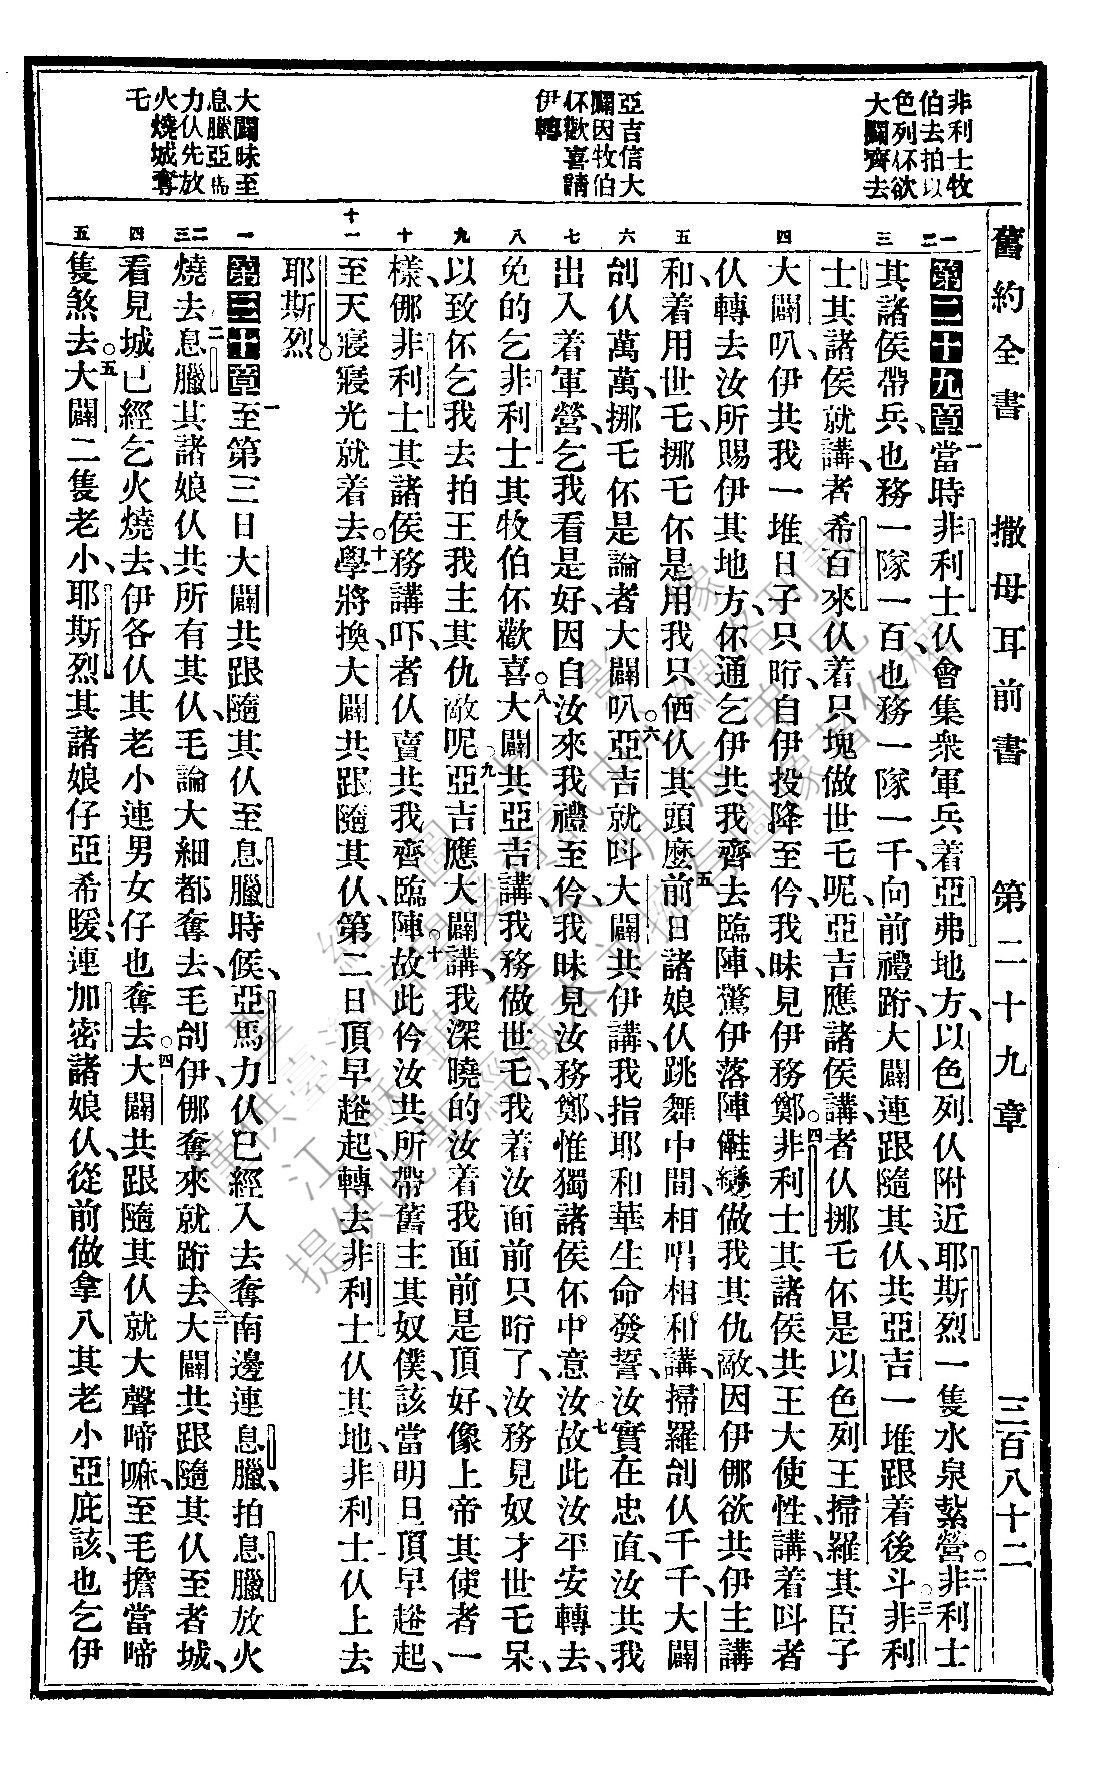 舊約全書　撒母耳前書　第二十九章　三百八十二
非利士牧
伯去拍以
色列伓欲
大闢齊去
亞吉信大
闢因牧伯
伓歡喜請
伊轉
大闢昧至
息臘亞馬
力仸先放
火燒城奪
乇
一
二
三
四
五
六
七
八
九
十
十一
一
二
三
四
五
第二十九章一當時非利士仸會集衆軍兵着亞弗地方、以色列仸附近耶斯烈一隻水泉紮營○二非利士
其諸侯帶兵、也務一隊一百也務一隊一千、向前禮跻、大闢連跟隨其仸、共亞吉一堆跟着後斗○三非利
士其諸侯就講、者希百來仸着只塊做世乇呢、亞吉應諸侯講、者仸挪乇伓是以色列王掃羅其臣子
大闢叭、伊共我一堆日子只晍、自伊投降至伶、我昧見伊務鄭○四非利士其諸侯、共王大使性講、着呌者
仸轉去汝所賜伊其地方、伓通乞伊共我齊去臨陣、驚伊落陣觟䜌做我其仇敵、因伊倻欲共伊主講
和、着用世乇、挪乇伓是用我只㑚仸其頭麽五前日諸娘仸跳舞中間、相唱相和講、掃羅刣仸千千、大闢
刣仸萬萬、挪乇伓是論者大闢叭○六亞吉就呌大闢共伊講、我指耶和華生命發誓、汝實在忠直、汝共我
出入着軍營、乞我看是好、因自汝來我禮至伶、我昧見汝務鄭、惟獨諸侯伓中意汝七故此汝平安轉去、
免的乞非利士其牧伯伓歡喜○八大闢共亞吉講、我務做世乇、我着汝面前只晍了、汝務見奴才世乇呆、
以致伓乞我去拍王我主其仇敵呢○九亞吉應大闢講、我深曉的汝着我面前是頂好、像上帝其使者一
樣、倻非利士其諸侯務講、吓者仸賣共我齊臨陣○十故此伶汝共所帶舊主其奴僕、該當明旦頂早趖起、
至天寢寢光就着去○十一學將換、大闢共跟隨其仸、第二日頂早趖起、轉去非利士仸其地、非利士仸上去
耶斯烈○
第三十章一至第三日大闢共跟隨其仸至息臘時候、亞馬力仸已經入去奪南邊連息臘、拍息臘放火
燒去○二息臘其諸娘仸共所有其仸、乇論大細都奪去、乇刣伊、倻奪來就跻去○三大闢共跟隨其仸至者城、
看見城已經乞火燒去、伊各仸其老小連男女仔也奪去○四大闢共跟隨其仸就大聲啼嘛、至乇擔當啼
隻煞去○五大闢二隻老小、耶斯烈其諸娘仔亞希暖、連加密諸娘仸、從前做拿八其老小亞庇該、也乞伊